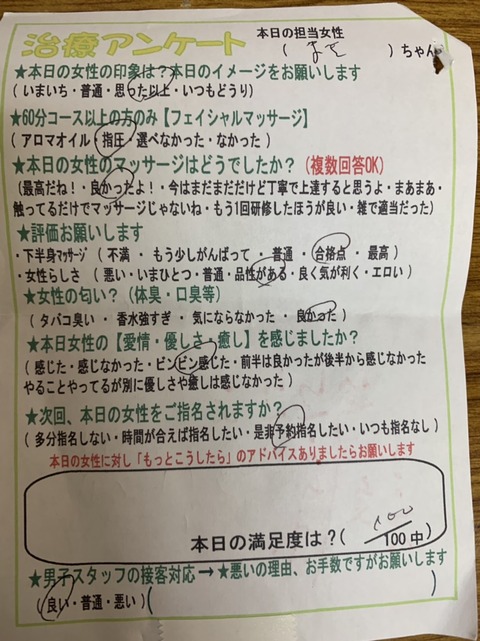 治療アンケート
本日の担当女性
( )ちゃん
★本日の女性の印象は?本日のイメージをお願いします
(いまいち・普通・思った以上・いつもどうり)
★60分コース以上の方のみ【フェイシャルマッサージ】
(アロマオイル・指圧・選べなかった・なかった)
★本日の女性のマッサージはどうでしたか?(複数回答OK)
(最高だね!・良かったよ!・今はまだまだだけど丁寧で上達すると思うよ・まあまあ・
触ってるだけでマッサージじゃないね・もう1回研修したほうが良い・雑で適当だった)
★評価お願いします
・下半身マッサージ ( 不満 ・ もう少しがんばって ・ 普通 ・ 合格点 ・ 最高 )
・女性らしさ ( 悪い・いまひとつ・普通・品性がある・良く気が利く・エロい )
★女性の匂い?(体臭・口臭等)
( タバコ臭い ・ 香水強すぎ ・ 気にならなかった ・ 良かった )
★本日女性の【愛情・優しさ・癒し】を感じましたか?
( 感じた・感じなかった・ビンビン感じた・前半は良かったが後半から感じなかった
やることやってるが別に優しさや癒しは感じなかった )
★次回、本日の女性をご指名されますか?
( 多分指名しない・時間が合えば指名したい・是非予約指名したい・いつも指名なし )
本日の女性に対し「もっとこうしたら」のアドバイスありましたらお願いします
本日の満足度は?( 100/100中)
★男子スタッフの接客対応→★悪いの理由、お手数ですがお願いします
(良い・普通・悪い)( )